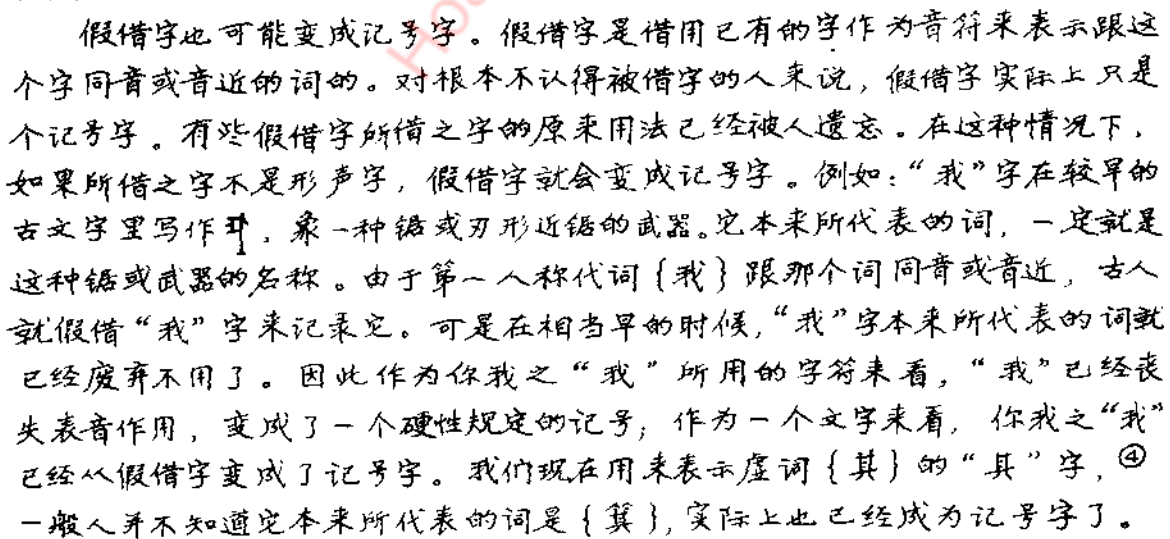 假借字也可能变成记号字。假借字是借用已有的字作为音符来表示跟这
个字同音或音近的词的。对根本不认得被借字的人来说，假借字实际上只是
个记号字。有些假借字所借之字的原来用法已经被人遗忘。在这种情况下，
如果所借之字不是形声字，假借字就会变成记号字。例如：“我”字在较早的
古文字里写作，象一种锯或刃形近锯的武器。它本来所代表的词，一定就是
这种锯或武器的名称。由于第一人称代词{我}跟那个词同音或音近，古人
就假借“我”字来记录它。可是在相当早的时候，“我”字本来所代表的词就
已经废弃不用了。因此作为你我之“我”所用的字符来看，“我”已经丧
失表音作用，变成了一个硬性规定的记号；作为一个文字来看，你我之“我”
已经从假借字变成了记号字。我们现在用来表示虚词{其}的“其”字，④
一般人并不知道它本来所代表的词是{箕}，实际上也已经成为记号字了。